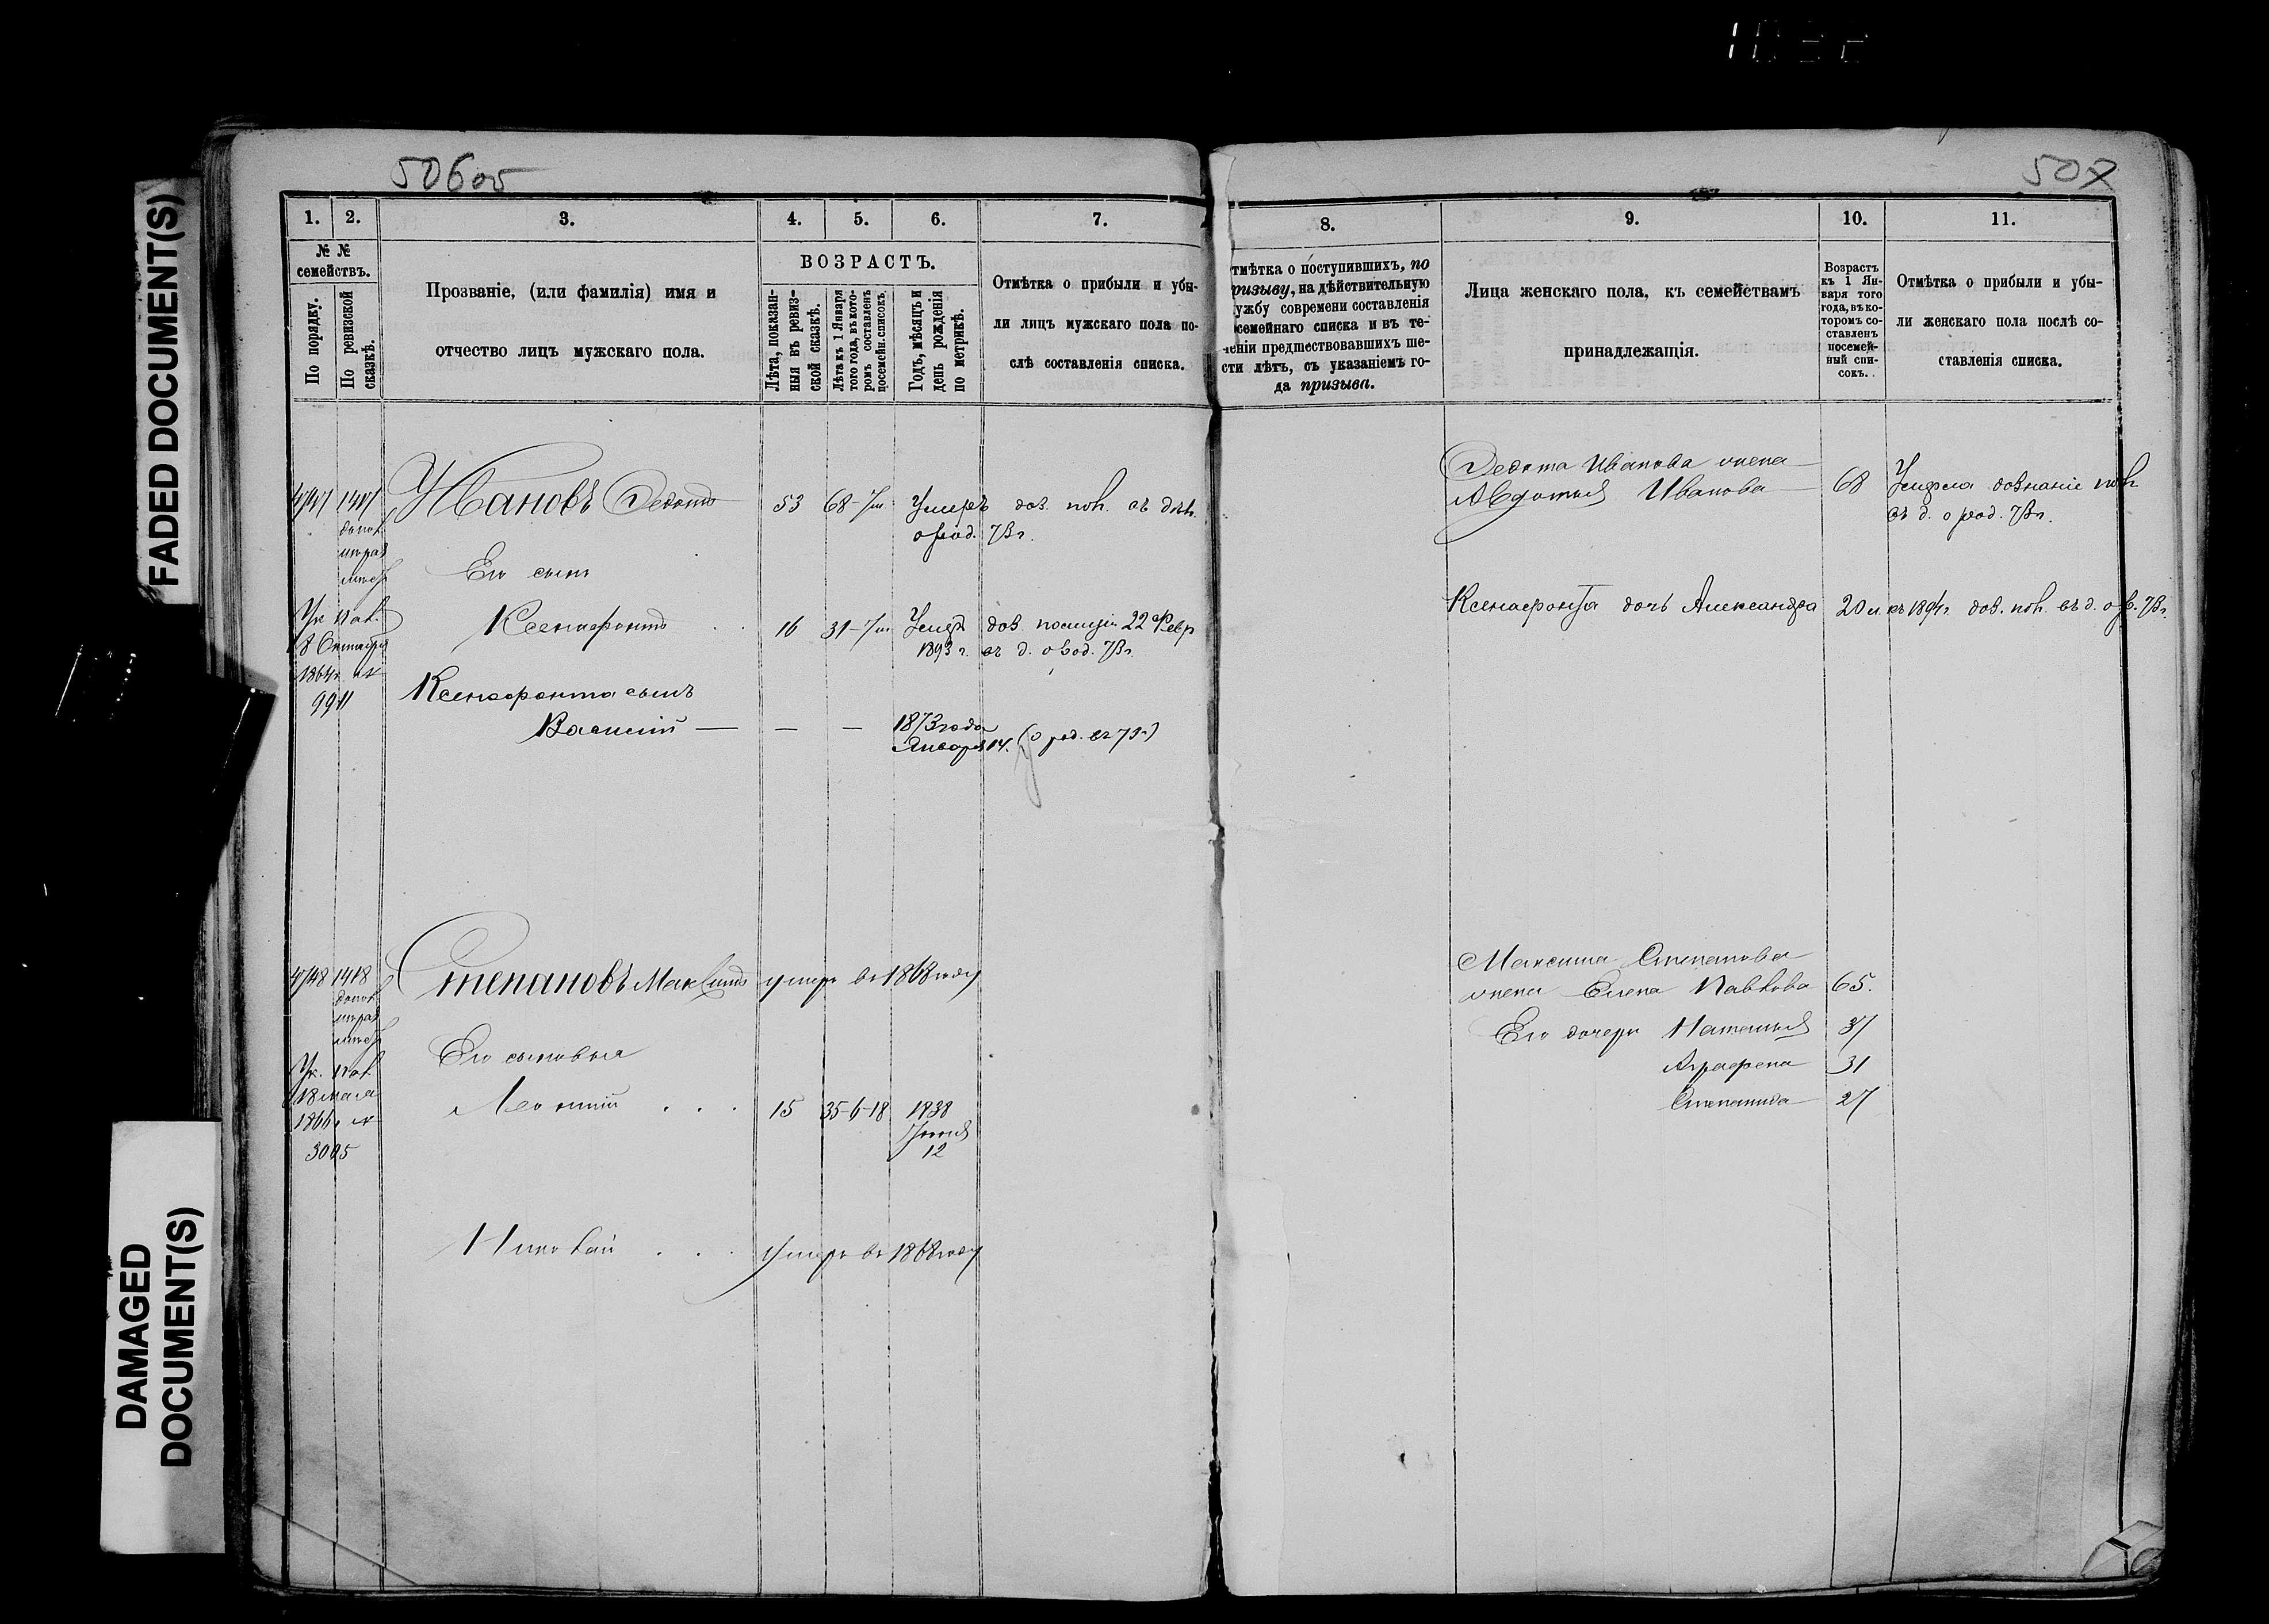 FADED DOCUMENT(S)
DAMAGED
DOCUMENT(S)
506об
1.
2.
3.
4.
5.
6.
7.
№ №
семействъ.
По порядку.
По ревизской
сказкѣ.
Прозваніе, (или фамилія) имя и
отчество лицъ мужскаго пола.
ВОЗРАСТЪ.
Лѣта, показан-
ныя въ ревиз-
ской сказкѣ.
Лѣта къ 1 Января
того года, въ кото-
ромъ составленъ
посемейн. списокъ.
Годъ, мѣсяцъ и
день рожденія
по метрикѣ.
Отмѣтка о прибыли и убы-
ли лицъ мужскаго пола по-
слѣ составленія списка.
Ивановъ Федотъ
53
68
Умеръ дов. пол.
Его сынъ
Ксенофонтъ
16
31
Умеръ дов. полиціи 22 Февр
1893 г.
9911
Ксенофонта сынъ
Василій — — —
1873 года
Января 14.
4748
1418
Степановъ Максимъ умеръ въ 1868 году
Его сыновья
18 мая
1866
3005
Леонтій . . .
15
35-6-18
1838
Іюня
12
Николай . . . умеръ въ 1868 году
507
8.
9.
10.
11.
тмѣтка о поступившихъ, по
ризыву, на дѣйствительную
ужбу современи составленія
семейнаго списка и въ те-
ченіи предшествовавшихъ ше-
сти лѣтъ, съ указаніемъ го-
да призыва.
Лица женскаго пола, къ семействамъ
принадлежащія.
Возрастъ
къ 1 Ян-
варя того
года, въ ко-
торомъ со-
ставленъ
посемей-
ный спи-
сокъ.
Отмѣтка о прибыли и убы-
ли женскаго пола послѣ со-
ставленія списка.
Федота Иванова жена
Авдотья Иванова
68
Умерла дознаніе пол.
Ксенофонта дочь Александра
20 л. въ 1894 г. дов. пол.
Максима Степанова
жена Елена Павлова
65.
Его дочери Наталья
37
Аграфена
31
Степанида
27